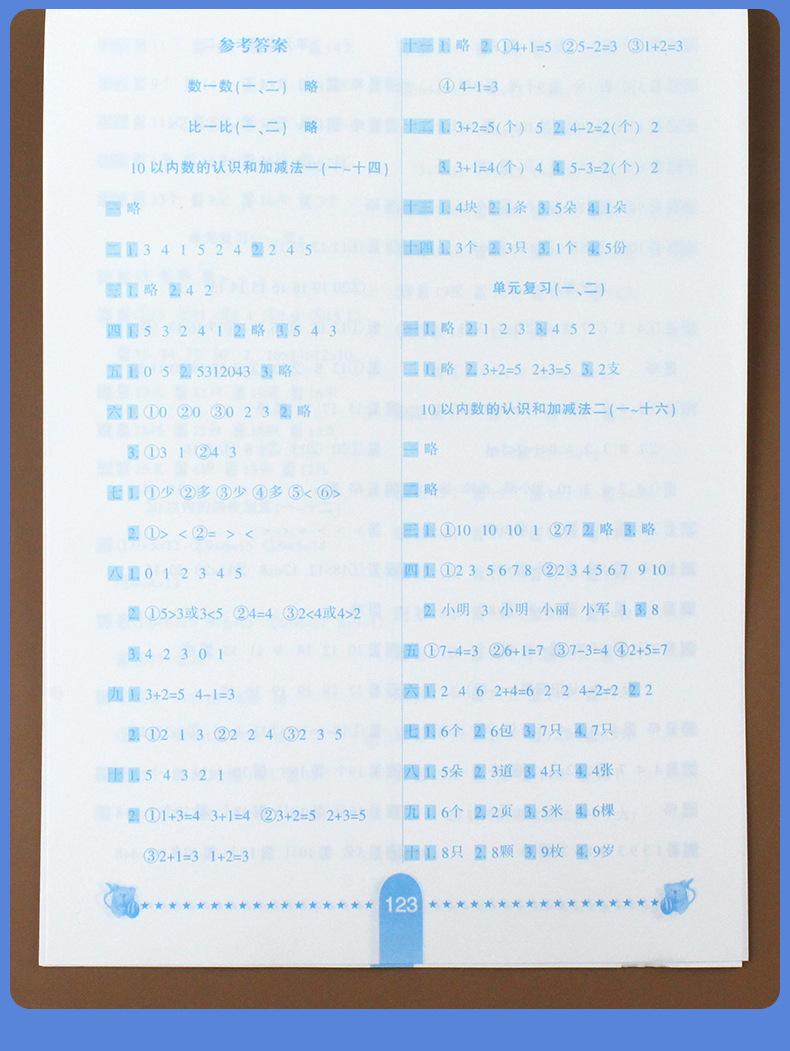 参考答案
数一数(一、二) 略
比一比(一、二) 略
10以内数的认识和加减法一(一~十四)
一 略
二 1. 3 4 1 5 2 4 2. 2 4 5
三 1. 略 2. 4 2
四 1. 5 3 2 4 1 2. 略 3. 5 4 3
五 1. 0 5 2. 5312043 3. 略
六 1. ①0 ②0 ③0 2 3 2. 略
3. ①3 1 ②4 3
七 1. ①少 ②多 ③少 ④多 ⑤< ⑥>
2. ①> < ②= > <
八 1. 0 1 2 3 4 5
2. ①5>3或3<5 ②4=4 ③2<4或4>2
3. 4 2 3 0 1
九 1. 3+2=5 4-1=3
2. ①2 1 3 ②2 2 4 ③2 3 5
十 1. 5 4 3 2 1
2. ①1+3=4 3+1=4 ②3+2=5 2+3=5
③2+1=3 1+2=3
十一 1. 略 2. ①4+1=5 ②5-2=3 ③1+2=3
④ 4-1=3
十二 1. 3+2=5(个) 5 2. 4-2=2(个) 2
3. 3+1=4(个) 4 4. 5-3=2(个) 2
十三 1. 4块 2. 1条 3. 5朵 4. 1朵
十四 1. 3个 2. 3只 3. 1个 4. 5份
单元复习(一、二)
一 1. 略 2. 1 2 3 3. 4 5 2
二 1. 略 2. 3+2=5 2+3=5 3. 2支
10以内数的认识和加减法二(一~十六)
一 略
二 略
三 1. ①10 10 10 1 ②7 2. 略 3. 略
四 1. ①2 3 5 6 7 8 ②2 3 4 5 6 7 9 10
2. 小明 3 小明 小丽 小军 1 3. 8
五 ①7-4=3 ②6+1=7 ③7-3=4 ④2+5=7
六 1. 2 4 6 2+4=6 2 2 4-2=2 2. 2
七 1. 6个 2. 6包 3. 7只 4. 7只
八 1. 5朵 2. 3道 3. 4只 4. 4张
九 1. 6个 2. 2页 3. 5米 4. 6棵
十 1. 8只 2. 8颗 3. 9枚 4. 9岁
123